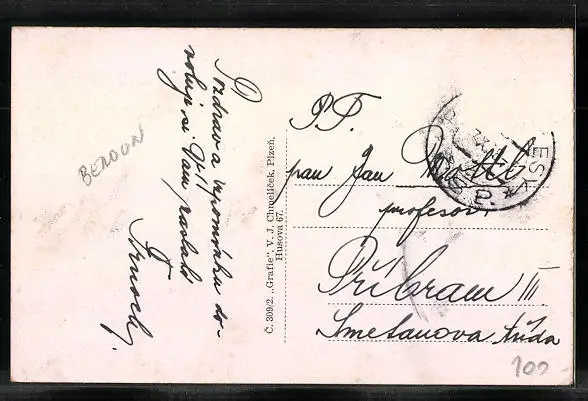 Pozdrav a vzpomínku do-
voluji si Vám zaslati
BEROUN
Č. 309/2. „Grafie", V. J. Chmelíček, Plzeň,
Husova 67.
P. T.
pan Jan
profesor
Příbram III.
Smetanova třída
100 -